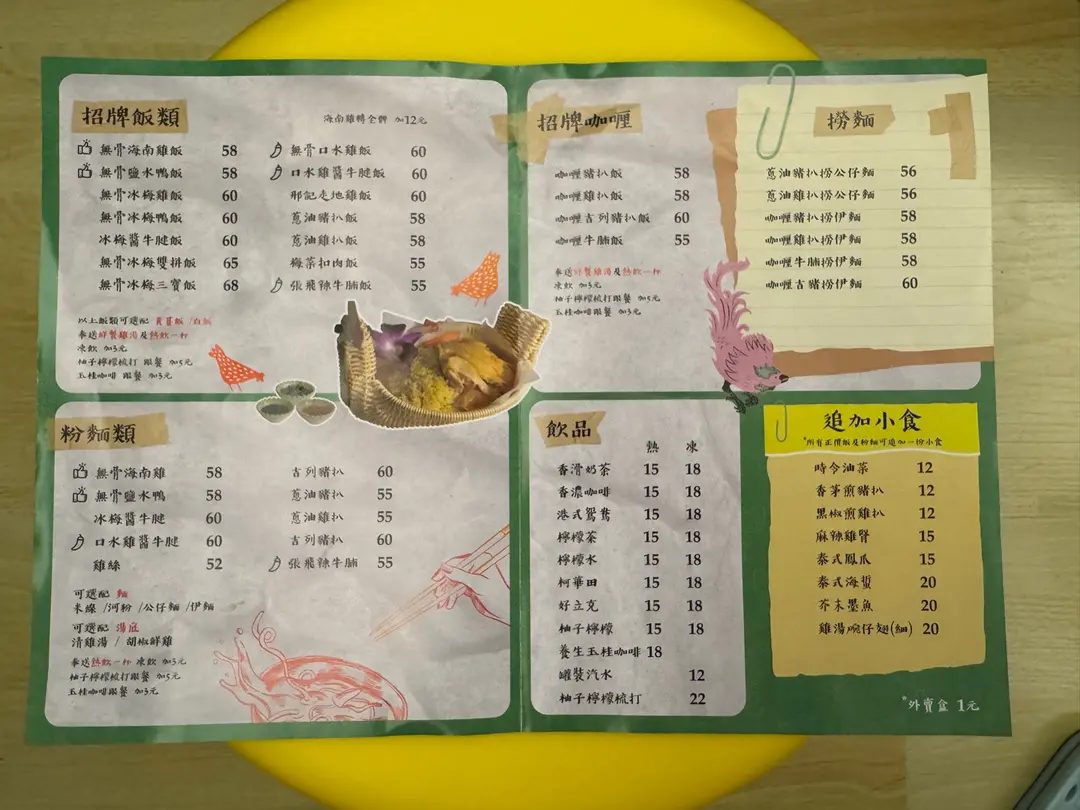 招牌飯類
海南雞轉全髀 加12元
無骨海南雞飯 58
無骨鹽水鴨飯 58
無骨冰梅雞飯 60
無骨冰梅鴨飯 60
冰梅醬牛腱飯 60
無骨冰梅雙拼飯 65
無骨冰梅三寶飯 68
無骨口水雞飯 60
口水雞醬牛腱飯 60
邪記走地雞飯 60
蔥油豬扒飯 58
蔥油雞扒飯 58
梅菜扣肉飯 55
張飛辣牛腩飯 55
以上飯類可選配 黃薑飯 /白飯
奉送鮮餐雞湯及熱飲一杯
凍飲 加3元
柚子檸檬梳打 跟餐 加5元
玉桂咖啡 跟餐 加3元
招牌咖喱
咖喱豬扒飯 58
咖喱雞扒飯 58
咖喱吉列豬扒飯 60
咖喱牛腩飯 55
奉送鮮餐雞湯及熱飲一杯
凍飲 加3元
柚子檸檬梳打跟餐 加5元
玉桂咖啡跟餐 加3元
撈麵
蔥油豬扒撈公仔麵 56
蔥油雞扒撈公仔麵 56
咖喱豬扒撈伊麵 58
咖喱雞扒撈伊麵 58
咖喱牛腩撈伊麵 58
咖喱吉豬撈伊麵 60
粉麵類
無骨海南雞 58
無骨鹽水鴨 58
冰梅醬牛腱 60
口水雞醬牛腱 60
雞絲 52
吉列豬扒 60
蔥油豬扒 55
蔥油雞扒 55
吉列豬扒 60
張飛辣牛腩 55
可選配 麵
米線 /河粉 /公仔麵 /伊麵
可選配 湯底
清雞湯 / 胡椒鮮雞
奉送熱飲一杯 凍飲 加3元
柚子檸檬梳打跟餐 加5元
玉桂咖啡跟餐 加3元
飲品
熱 凍
香滑奶茶 15 18
香濃咖啡 15 18
港式鴛鴦 15 18
檸檬茶 15 18
檸檬水 15 18
柯華田 15 18
好立克 15 18
柚子檸檬 15 18
養生玉桂咖啡 18
罐裝汽水 12
柚子檸檬梳打 22
追加小食
*所有正價飯及粉麵可追加一份小食
時令油菜 12
香茅煎豬扒 12
黑椒煎雞扒 12
麻辣雞腎 15
泰式鳳爪 15
泰式海蜇 20
芥末墨魚 20
雞湯碗仔翅(細) 20
*外賣盒 1元